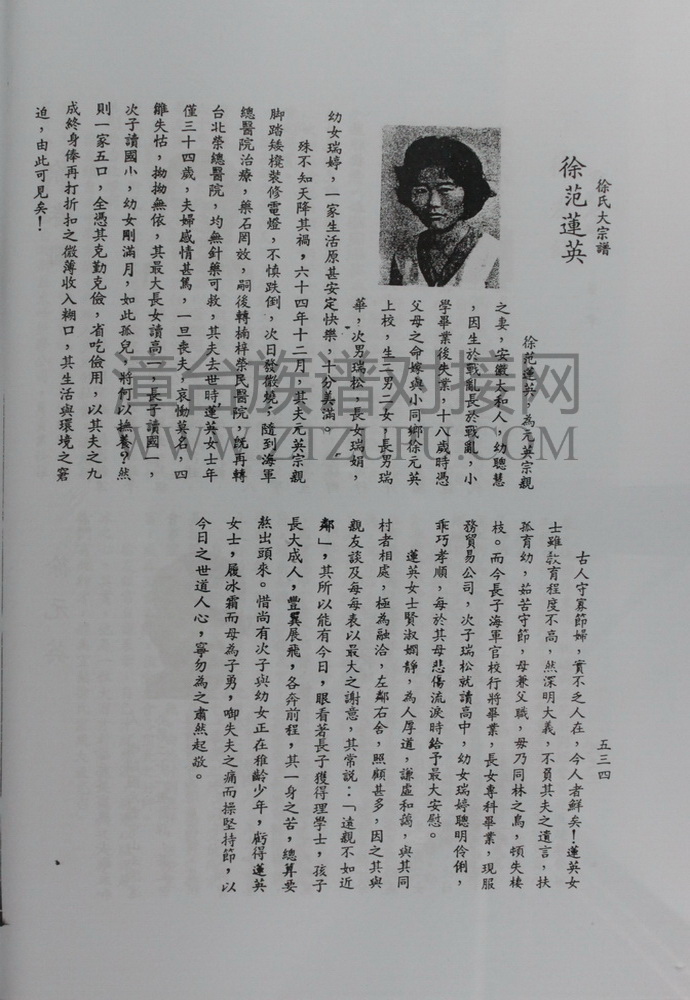 徐氏大宗譜
徐范蓮英
徐范蓮英，為元英宗親
之妻，安徽太和人，幼聰慧
，因生於戰亂長於戰亂，小
學畢業後失業，十八歲時憑
父母之命嫁與小同鄉徐元英
上校，生二男二女，長男瑞
華，次男瑞松，長女瑞娟，
幼女瑞婷，一家生活原甚安定快樂，十分美滿。
殊不知天降其禍，六十四年十二月，其夫元英宗親
脚踏矮櫈裝修電燈，不慎跌倒，次日發微燒，隨到海軍
總醫院治療，藥石罔效，嗣後轉楠梓榮民醫院，既再轉
台北榮總醫院，均無針藥可救，其夫去世時蓮英女士年
僅三十四歲，夫婦感情甚篤，一旦喪夫，哀慟莫名，四
雛失怙，拗拗無依，其最大長女讀高一，長子讀國一，
次子讀國小，幼女剛滿月，如此孤兒，將何以撫養？然
則一家五口，全憑其克勤克儉，省吃儉用，以其夫之九
成終身俸再打折扣之微薄收入糊口，其生活與環境之窘
迫，由此可見矣！
古人守寡節婦，實不乏人在，今人者鮮矣！蓮英女
士雖教育程度不高，然深明大義，不負其夫之遺言，扶
孤育幼，茹苦守節，母兼父職，毋乃同林之鳥，頓失棲
枝。而今長子海軍官校行將畢業，長女專科畢業，現服
務貿易公司，次子瑞松就讀高中，幼女瑞婷聰明伶俐，
乖巧孝順，每於其母悲傷流淚時給予最大安慰。
蓮英女士賢淑嫻靜，為人厚道，謙虛和藹，與其同
村者相處，極為融洽，左鄰右舍，照顧甚多，因之其與
親友談及每每表以最大之謝意，其常說：「遠親不如近
鄰」，其所以能有今日，眼看著長子獲得理學士，孩子
長大成人，豐翼展飛，各奔前程，其一身之苦，總算要
熬出頭來。惜尚有次子與幼女正在稚齡少年，虧得蓮英
女士，履冰霜而母為子勇，啣失夫之痛而操堅持節，以
今日之世道人心，寧勿為之肅然起敬。
五三四
漳台族谱对接网
WWW.ZTZUFU.COM